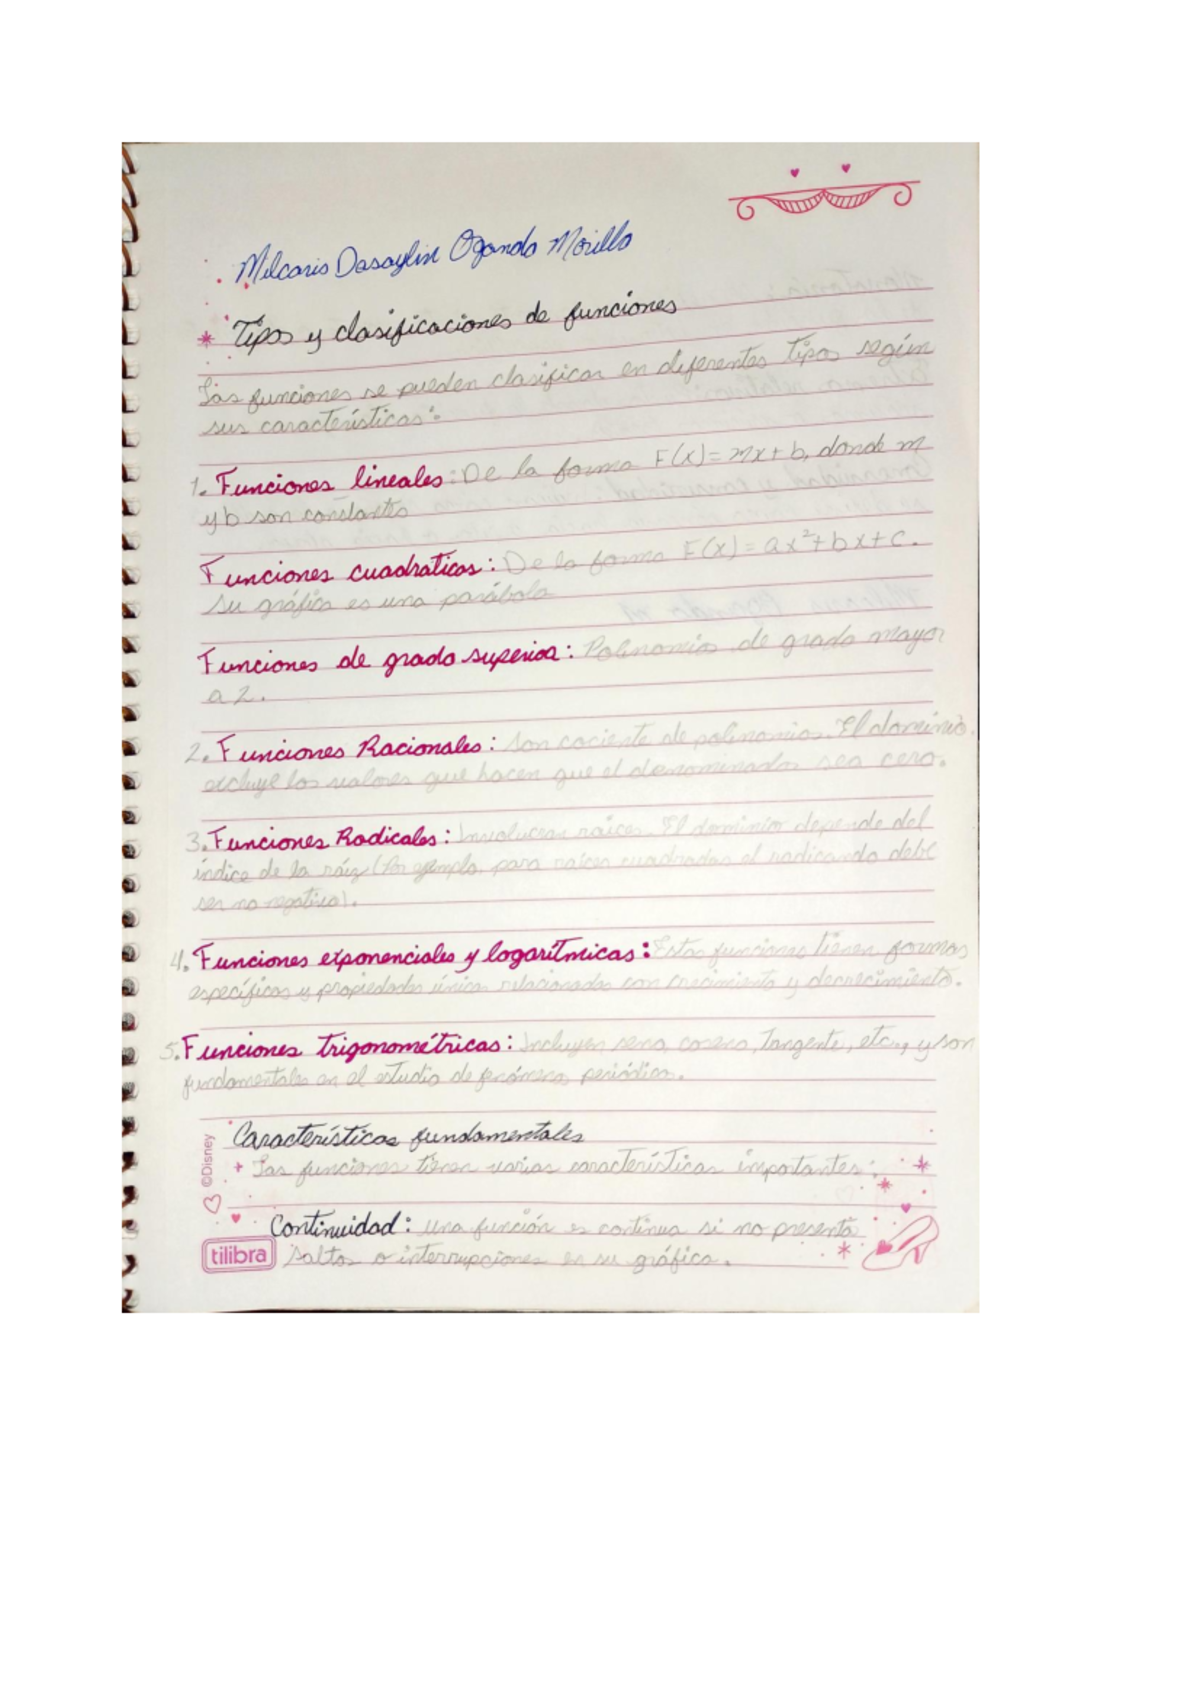 Milcaris Dasaylin Ogando Morillo
* Tipos y clasificaciones de funciones
Las funciones se pueden clasificar en diferentes tipos según
sus características:
1. Funciones lineales: De la forma F(x)=mx+b, donde m
y b son constantes
Funciones cuadraticas: De la forma F(x)=ax²+bx+c.
Su gráfica es una parábola
Funciones de grado superior: Polinomios de grado mayor
a 2.
2. Funciones Racionales: Son cociente de polinomios. El dominio
excluye los valores que hacen que el denominador sea cero.
3. Funciones Radicales: Involucran raíces. El dominio depende del
índice de la ráiz (Por ejemplo, para raíces cuadradas el radicando debe
ser no negativo).
4. Funciones exponenciales y logarítmicas: Estas funciones tienen formas
específicas y propiedades únicas relacionadas con crecimiento y decrecimiento.
5. Funciones trigonométricas: Incluyen seno, coseno, tangente, etc., y son
fundamentales en el estudio de fenómenos periódicos.
Características fundamentales
+ Las funciones tienen varias características importantes:
Continuidad: una función es continua si no presenta
saltos o interrupciones en su gráfica.
©Disney
tilibra